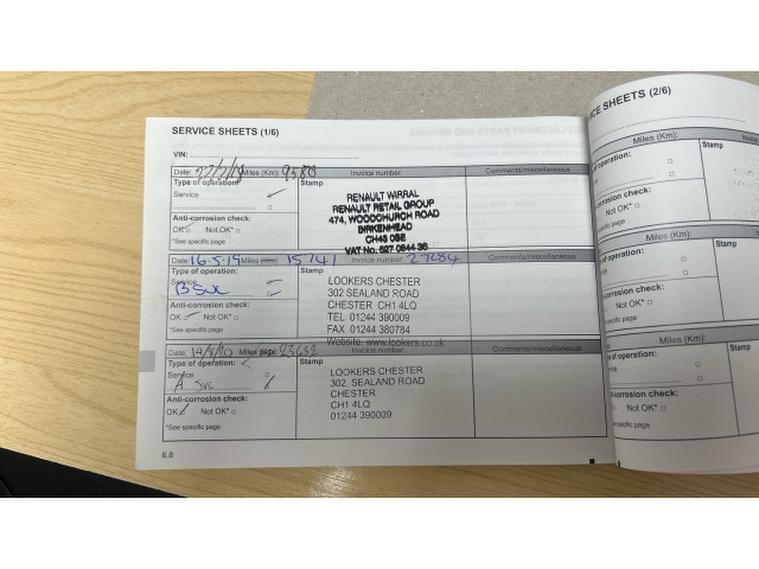 SERVICE SHEETS (1/6)
VIN:
Date: 22/2/18 Miles (Km): 9580 Invoice number: Comments/miscellaneous
Type of operation: Stamp
Service
Anti-corrosion check:
OK Not OK*
*See specific page
RENAULT WIRRAL
RENAULT RETAIL GROUP
474, WOODCHURCH ROAD
BIRKENHEAD
CH43 0SE
VAT No. 627 0944 36
Date: 16-5-19 Miles (Km): 15741 Invoice number: 27684 Comments/miscellaneous
Type of operation: Stamp
Service
B Svc
Anti-corrosion check:
OK Not OK*
*See specific page
LOOKERS CHESTER
302 SEALAND ROAD
CHESTER CH1 4LQ
TEL 01244 390009
FAX 01244 380784
Website: www.lookers.co.uk
Date: 14/8/20 Miles 23632 Invoice number: Comments/miscellaneous
Type of operation: Stamp
Service
A Svc
Anti-corrosion check:
OK Not OK*
*See specific page
LOOKERS CHESTER
302, SEALAND ROAD
CHESTER
CH1 4LQ
01244 390009
6.8
ICE SHEETS (2/6)
Miles (Km):
of operation: Stamp
-corrosion check:
Not OK*
specific page
Miles (Km):
of operation: Stamp
-corrosion check:
Not OK*
specific page
Miles (Km):
of operation: Stamp
-corrosion check:
Not OK*
*See specific page